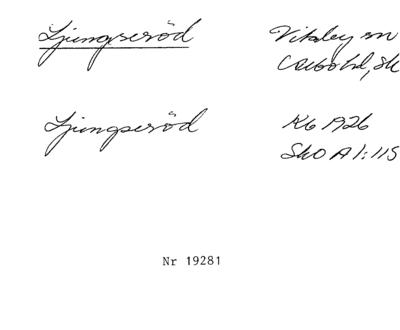 Ljungseröd
Vitaby sn
Ljungseröd
Kb 1926
SkO A 1:115
Nr 19281